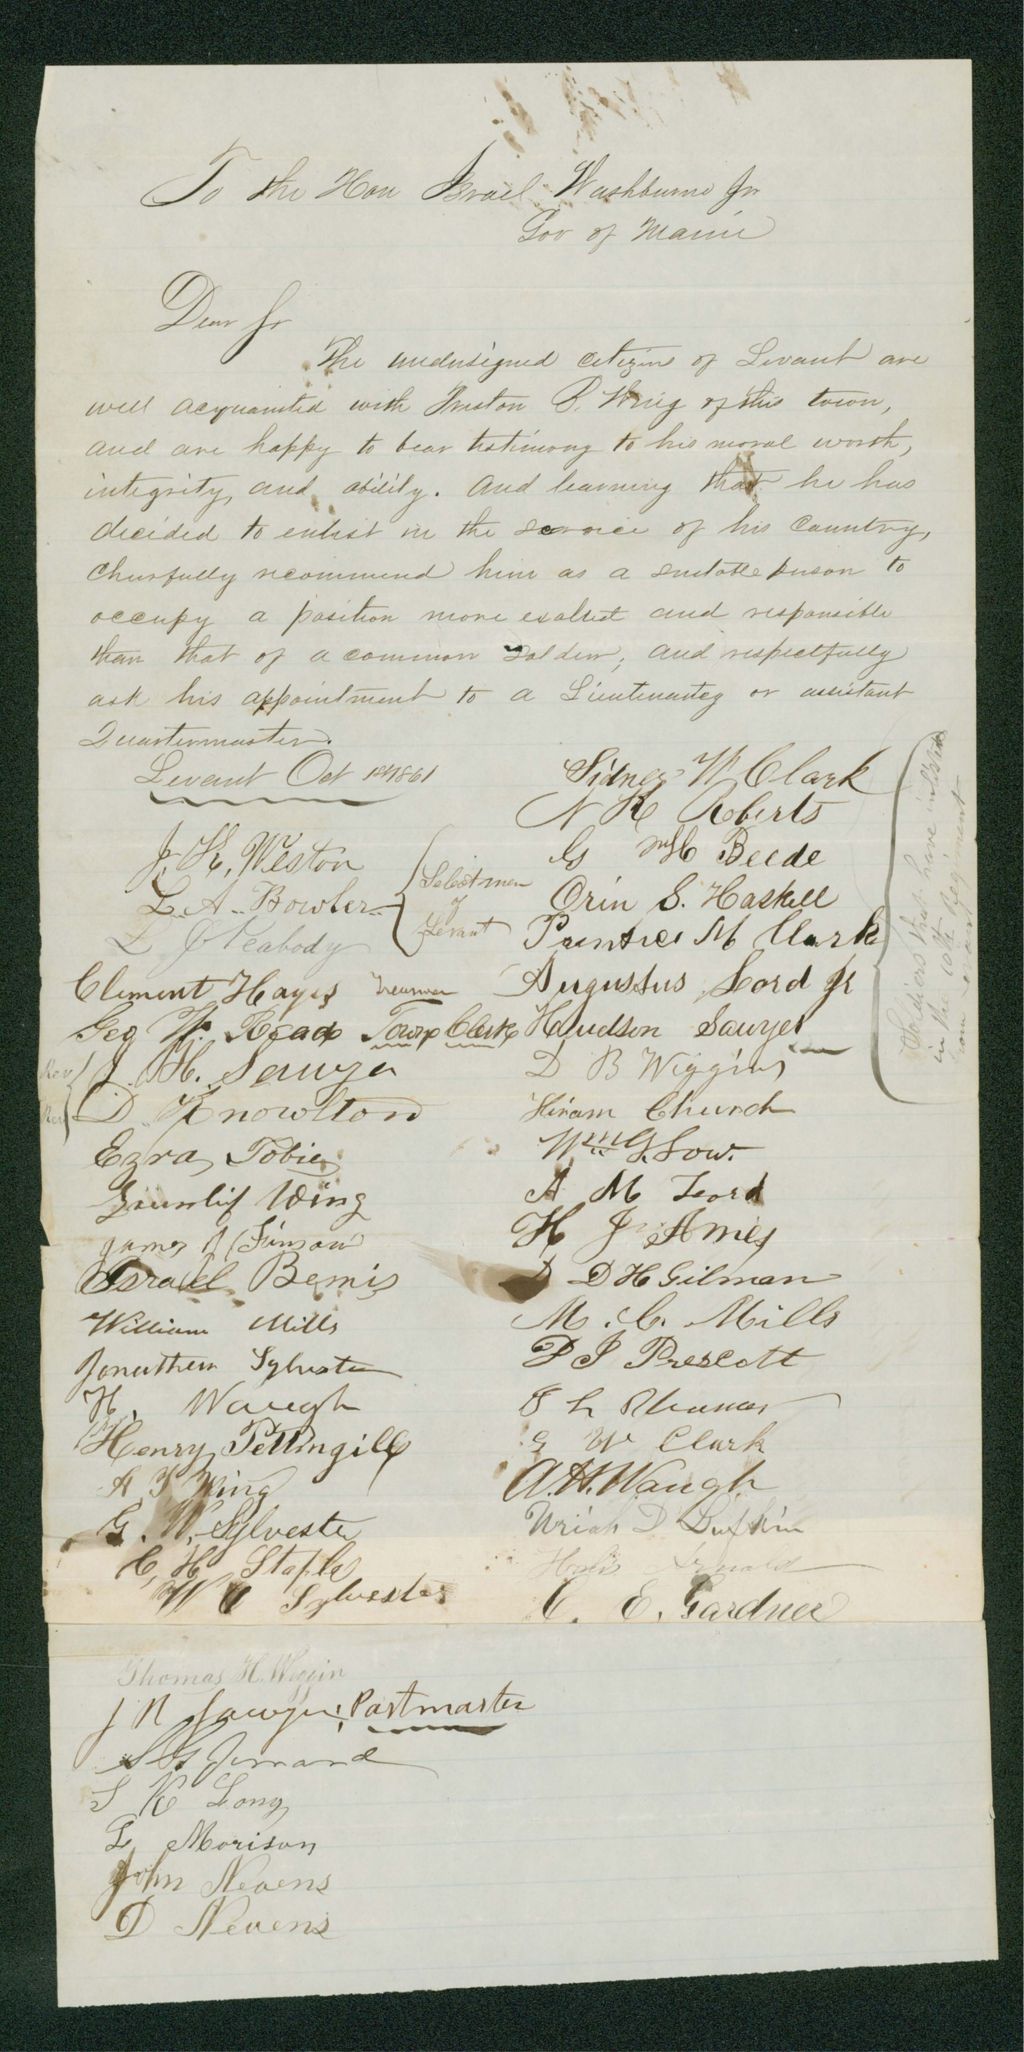 To the Hon Israel Washburne Jr
Gov of Maine
Dear Sir
The undersigned citizens of Levant are
well acquainted with Preston B. Wing of this town,
and are happy to bear testimony to his moral worth,
integrity, and ability. And learning that he has
decided to enlist in the service of his Country,
cheerfully recommend him as a suitable person to
occupy a position more exalted and responsible
than that of a common soldier; and respectfully
ask his appointment to a Lieutenantcy or assistant
Quartermaster.
Levant Oct 1861
J. K. Weston
L. A. Bowler
L J Peabody
Selectmen
of
Levant
Clement Hayes Treasurer
Geo W. Read Town Clerk
Rev J. H. Sawyer
Rev D. Knowlton
Ezra Tobie
Greenlief Wing
James
Israel Bemis
William Mills
Jonathan Sylvester
H. Waugh
Henry Pettingill
A Wing
G. W. Sylvester
C. H. Staple
W C Sylvester
Thomas H. Wiggin
J N Sawyer, Postmaster
S K Long
L Morison
John Nevens
D Nevens
Sidney W Clark
N K Roberts
G McH Beede
Orin S. Haskell
Prentice M Clark
Augustus Lord Jr
Hudson Sawyer
Soldiers that have inlisted
in the 10th Regiment
D B Wiggins
Hiram Church
Wm G. Low.
A M Lord
H J Ames
D D H Gilman
M. C. Mills
D J Prescott
G W Clark
A. H. Waugh
Uriah D Dufkin
C. E. Gardner